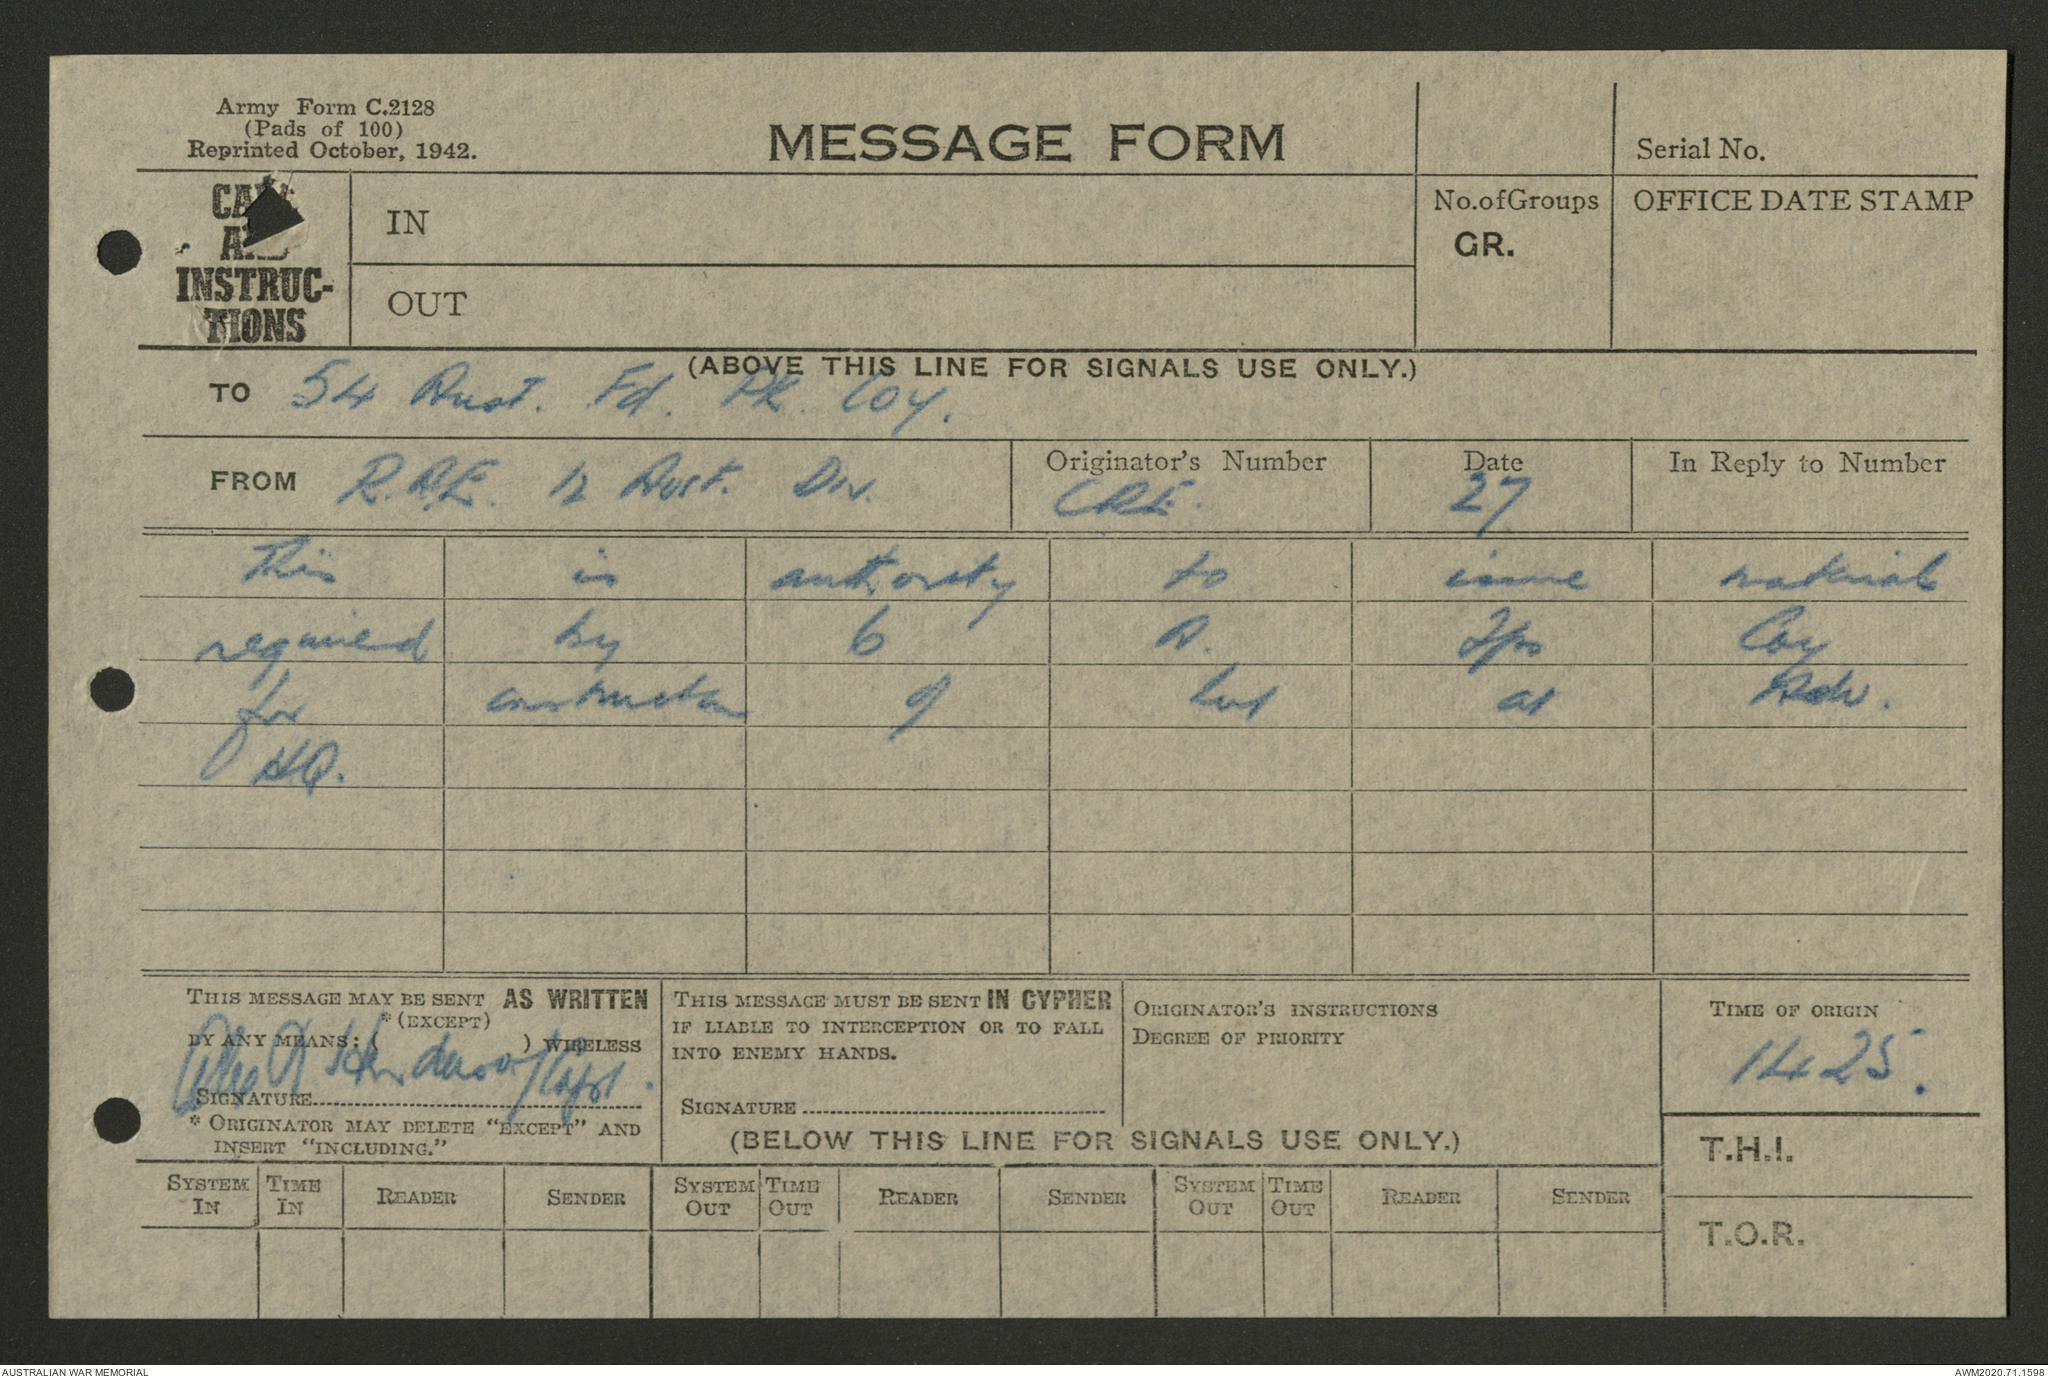 Army Form C.2128
(Pads of 100)
Reprinted October, 1942.
MESSAGE FORM
Serial No.
INSTRUC-
TIONS
IN
OUT
No. of Groups
GR.
OFFICE DATE STAMP
(ABOVE THIS LINE FOR SIGNALS USE ONLY.)
TO 54 Aust. Fd. Pk. Coy.
FROM R.A.E. 12 Aust. Div.
Originator's Number
CRE.
Date
27
In Reply to Number
This is authority to issue materials
required by 6 A. Tps Coy
for construction of hut at Adv.
HQ.
THIS MESSAGE MAY BE SENT AS WRITTEN
* (EXCEPT)
BY ANY MEANS: ( ) WIRELESS
Henderson Capt.
SIGNATURE
* ORIGINATOR MAY DELETE "EXCEPT" AND
INSERT "INCLUDING."
THIS MESSAGE MUST BE SENT IN CYPHER
IF LIABLE TO INTERCEPTION OR TO FALL
INTO ENEMY HANDS.
SIGNATURE
ORIGINATOR'S INSTRUCTIONS
DEGREE OF PRIORITY
TIME OF ORIGIN
1425.
(BELOW THIS LINE FOR SIGNALS USE ONLY.)
T.H.I.
T.O.R.
SYSTEM IN TIME IN READER SENDER SYSTEM OUT TIME OUT READER SENDER SYSTEM OUT TIME OUT READER SENDER
AUSTRALIAN WAR MEMORIAL
AWM2020.71.1598